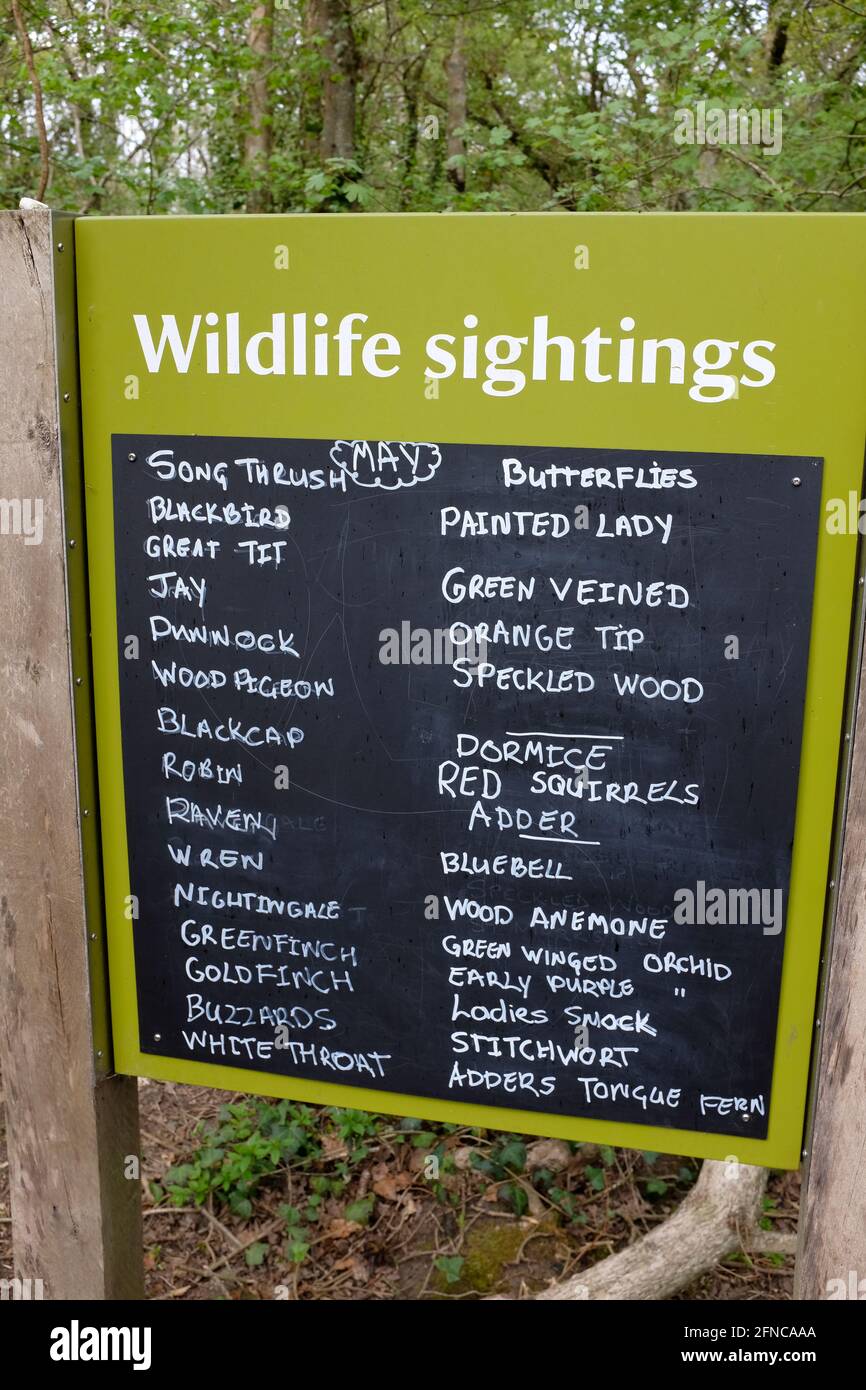 Wildlife sightings
MAY
SONG THRUSH
BLACKBIRD
GREAT TIT
JAY
DUNNOCK
WOODPIGEON
BLACKCAP
ROBIN
RAVEN
WREN
NIGHTINGALE
GREENFINCH
GOLDFINCH
BUZZARDS
WHITE THROAT
BUTTERFLIES
PAINTED LADY
GREEN VEINED
ORANGE TIP
SPECKLED WOOD
DORMICE
RED SQUIRRELS
ADDER
BLUEBELL
WOOD ANEMONE
GREEN WINGED ORCHID
EARLY PURPLE "
Ladies Smock
STITCHWORT
ADDERS TONGUE FERN
alamy
Image ID: 2FNCAAA
www.alamy.com